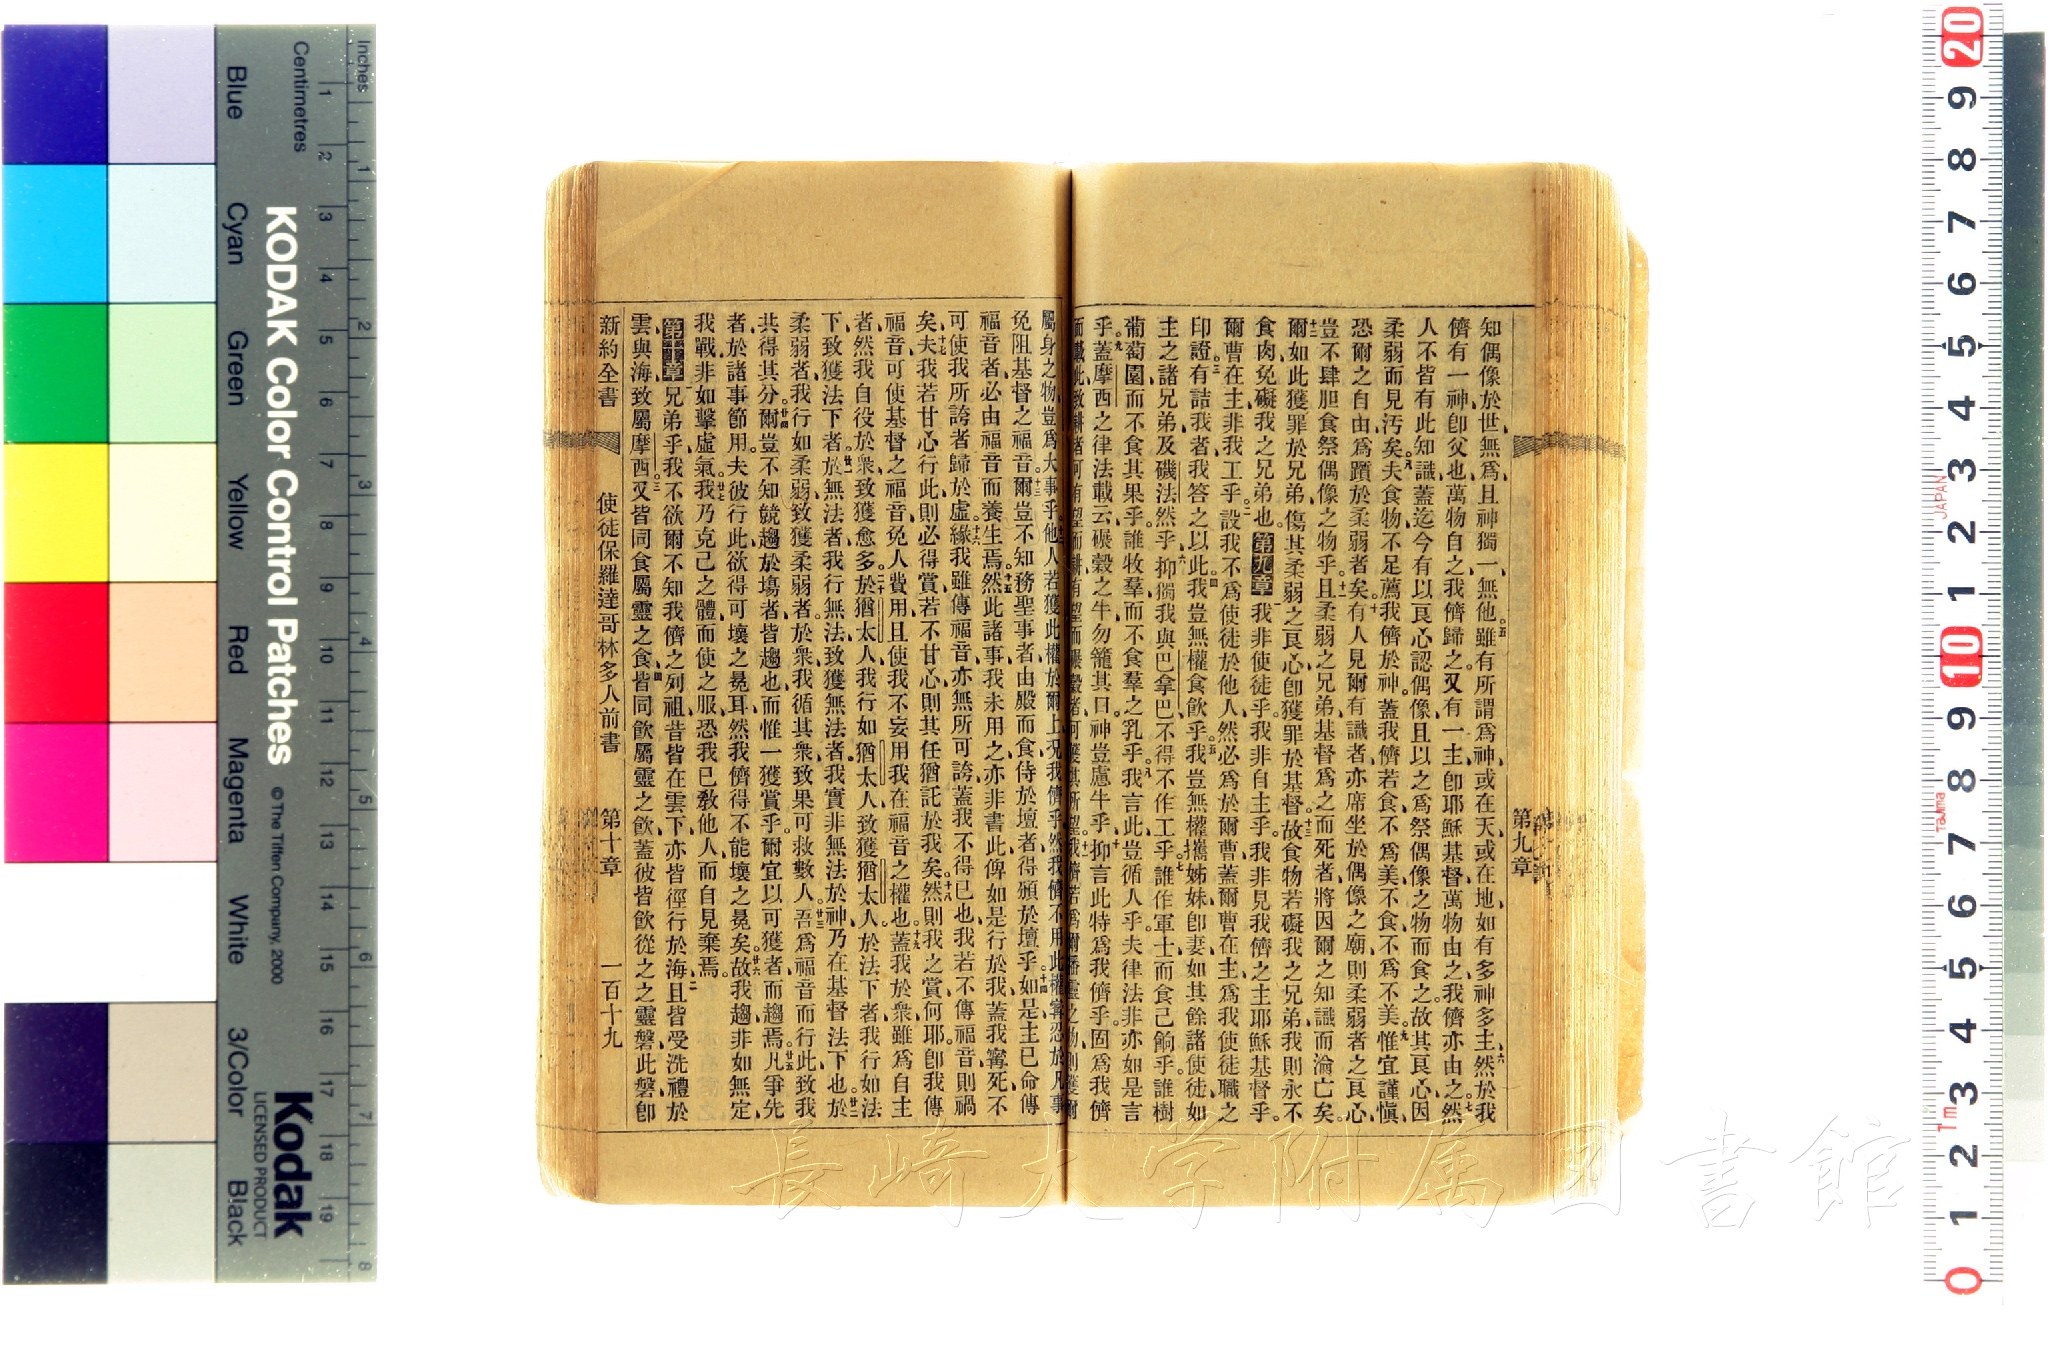 知偶像於世無爲且神獨一無他五雖有所謂爲神或在天或在地如有多神多主六然於我
儕有一神卽父也萬物自之我儕歸之又有一主卽耶穌基督萬物由之我儕亦由之七然
人不皆有此知識蓋迄今有以良心認偶像且以之爲祭偶像之物而食之故其良心因
柔弱而見汚矣八夫食物不足薦我儕於神蓋我儕若食不爲美不食不爲不美九惟宜謹愼
恐爾之自由爲躓於柔弱者矣十有人見爾有識者亦席坐於偶像之廟則柔弱者之良心
豈不肆胆食祭偶像之物乎十一且柔弱之兄弟基督爲之而死者將因爾之知識而淪亡矣
十二爾如此獲罪於兄弟傷其柔弱之良心卽獲罪於基督十三故食物若礙我之兄弟我則永不
食肉免礙我之兄弟也第九章一我非使徒乎我非自主乎我非見我儕之主耶穌基督乎
爾曹在主非我工乎二設我不爲使徒於他人然必爲於爾曹蓋爾曹在主爲我使徒職之
印證三有詰我者我答之以此四我豈無權食飲乎五我豈無權攜姊妹卽妻如其餘諸使徒如
主之諸兄弟及磯法然乎六抑獨我與巴拿巴不得不作工乎七誰作軍士而食己餉乎誰樹
葡萄園而不食其果乎誰牧羣而不食羣之乳乎八我言此豈循人乎夫律法非亦如是言
乎九蓋摩西之律法載云碾穀之牛勿籠其口神豈慮牛乎十抑言此特爲我儕乎固爲我儕
而載此致耕者可有望而耕有望而碾穀者可獲其所望十一我儕若爲爾播靈之物則獲爾
第九章
屬身之物豈爲大事乎十二他人若獲此權於爾上况我儕乎然我儕不用此權寧忍於凡事
免阻基督之福音十三爾豈不知務聖事者由殿而食侍於壇者得頒於壇乎十四如是主已命傳
福音者必由福音而養生焉十五然此諸事我未用之亦非書此俾如是行於我蓋我寧死不
可使我所誇者歸於虛十六緣我雖傳福音亦無所可誇蓋我不得已也我若不傳福音則禍
矣十七夫我若甘心行此則必得賞若不甘心則其任猶託於我矣十八然則我之賞何耶卽我傳
福音可使基督之福音免人費用且使我不妄用我在福音之權也十九蓋我於衆雖爲自主
者然我自役於衆致獲愈多二十於猶太人我行如猶太人致獲猶太人於法下者我行如法
下致獲法下者廿一於無法者我行無法致獲無法者我實非無法於神乃在基督法下也廿二於
柔弱者我行如柔弱致獲柔弱者於衆我循其衆致果可救數人廿三吾爲福音而行此致我
共得其分廿四爾豈不知競趨於塲者皆趨也而惟一獲賞乎爾宜以可獲者而趨焉廿五凡爭先
者於諸事節用夫彼行此欲得可壞之冕耳然我儕得不能壞之冕矣廿六故我趨非如無定
我戰非如擊虛氣廿七我乃克己之體而使之服恐我已敎他人而自見棄焉
第十章一兄弟乎我不欲爾不知我儕之列祖昔皆在雲下亦皆徑行於海二且皆受洗禮於
雲與海致屬摩西三又皆同食屬靈之食四皆同飲屬靈之飲蓋彼皆飲從之之靈磐此磐卽
新約全書 使徒保羅達哥林多人前書 第十章 一百十九